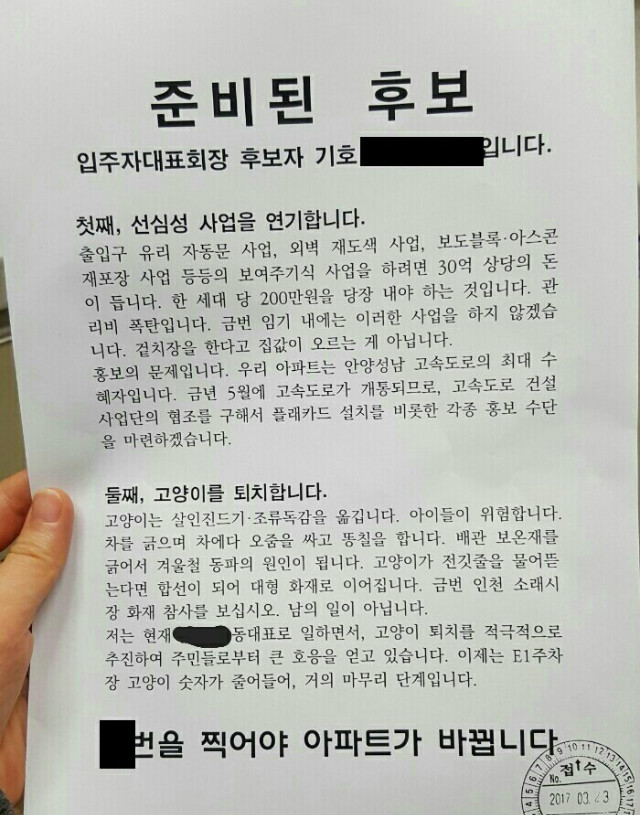 준비된 후보
입주자대표회장 후보자 기호 입니다.
첫째, 선심성 사업을 연기합니다.
출입구 유리 자동문 사업, 외벽 재도색 사업, 보도블록·아스콘
재포장 사업 등등의 보여주기식 사업을 하려면 30억 상당의 돈
이 듭니다. 한 세대 당 200만원을 당장 내야 하는 것입니다. 관
리비 폭탄입니다. 금번 임기 내에는 이러한 사업을 하지 않겠습
니다. 겉치장을 한다고 집값이 오르는 게 아닙니다.
홍보의 문제입니다. 우리 아파트는 안양성남 고속도로의 최대 수
혜자입니다. 금년 5월에 고속도로가 개통되므로, 고속도로 건설
사업단의 협조를 구해서 플래카드 설치를 비롯한 각종 홍보 수단
을 마련하겠습니다.
둘째, 고양이를 퇴치합니다.
고양이는 살인진드기·조류독감을 옮깁니다. 아이들이 위험합니다.
차를 긁으며 차에다 오줌을 싸고 똥칠을 합니다. 배관 보온재를
긁어서 겨울철 동파의 원인이 됩니다. 고양이가 전깃줄을 물어뜯
는다면 합선이 되어 대형 화재로 이어집니다. 금번 인천 소래시
장 화재 참사를 보십시오. 남의 일이 아닙니다.
저는 현재 동대표로 일하면서, 고양이 퇴치를 적극적으로
추진하여 주민들로부터 큰 호응을 얻고 있습니다. 이제는 E1주차
장 고양이 숫자가 줄어들어, 거의 마무리 단계입니다.
번을 찍어야 아파트가 바뀝니다
7 8 9 10 11 12 13 14 15 16 17
No. 접수
2017 03. 23